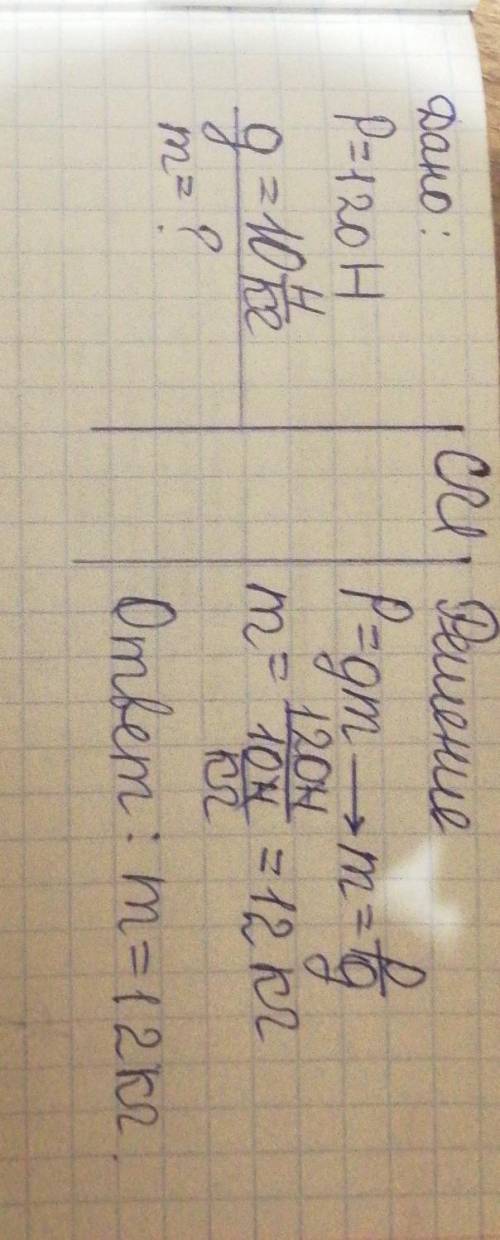 Дано:
P=120Н
g=10Н/кг
m=?
СИ
Решение
P=gm → m=P/g
m=120Н/10Н/кг=12кг
Ответ: m=12кг.